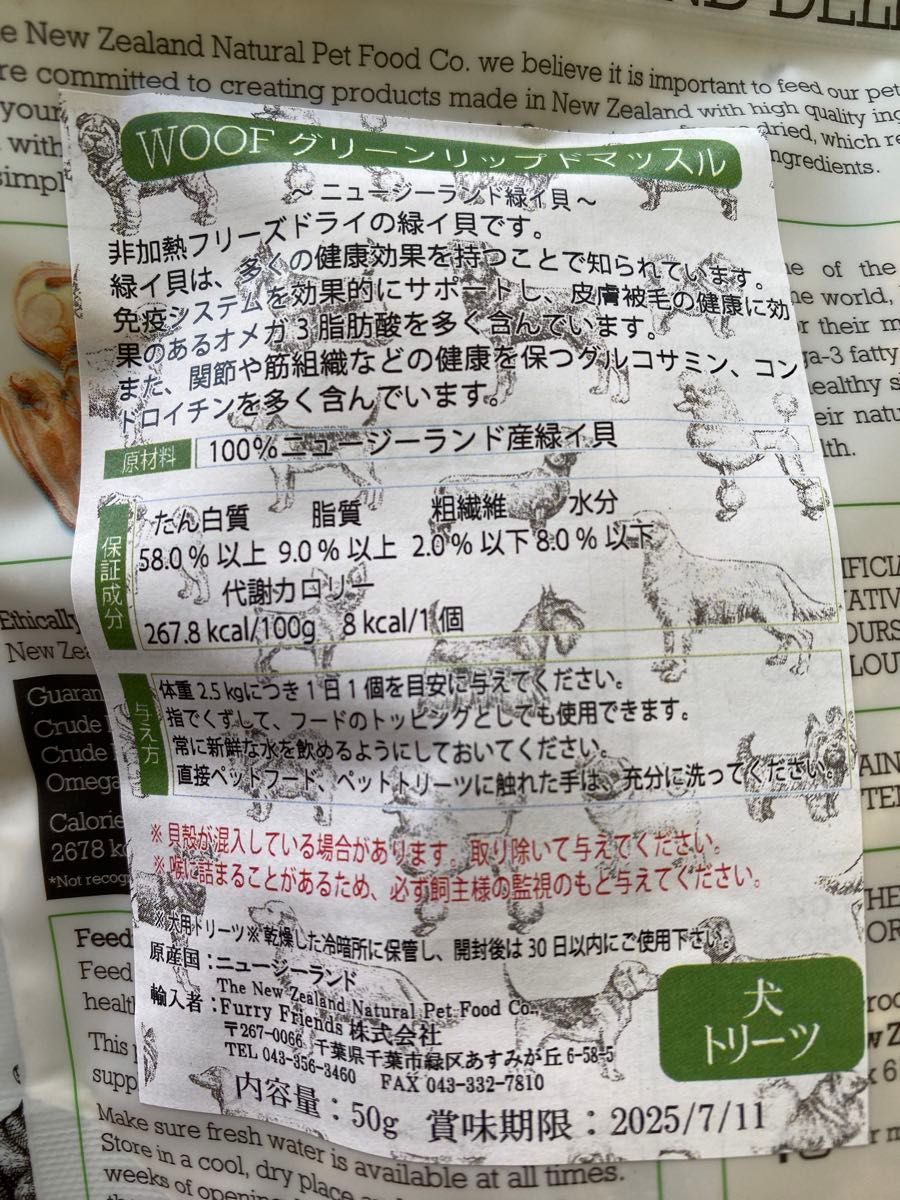 ND DELI
e New Zealand Natural Pet Food Co. we believe it is important to feed our pet
re committed to creating products made in New Zealand with high quality ing
your
dried, which re
with
ngredients.
simpl
WOOF グリーンリップドマッスル
～ニュージーランド緑イ貝～
非加熱フリーズドライの緑イ貝です。
緑イ貝は、多くの健康効果を持つことで知られています。
免疫システムを効果的にサポートし、皮膚被毛の健康に効
果のあるオメガ3脂肪酸を多く含んでいます。
また、関節や筋組織などの健康を保つグルコサミン、コン
ドロイチンを多く含んでいます。
ne of the
he world,
r their m
ga-3 fatty
healthy s
eir natu
lth.
原材料 100%ニュージーランド産緑イ貝
保証成分
たん白質 脂質 粗繊維 水分
58.0 % 以上 9.0 % 以上 2.0 % 以下 8.0 % 以下
代謝カロリー
267.8 kcal/100g 8 kcal/1個
Ethically
New Zea
Guaran
Crude
Crude
Omega
Calorie
2678 kc
*Not recog
IFICIA
ATIV
OURS
LOU
与え方
体重 2.5 kgにつき1日1個を目安に与えてください。
指でくずして、フードのトッピングとしても使用できます。
常に新鮮な水を飲めるようにしておいてください。
直接ペットフード、ペットトリーツに触れた手は、充分に洗ってください。
AIN
TEI
※ 貝殻が混入している場合があります。取り除いて与えてください。
※ 喉に詰まることがあるため、必ず飼主様の監視のもと与えてください。
HE
OR
※犬用トリーツ※乾燥した冷暗所に保管し、開封後は 30 日以内にご使用下さい。
原産国：ニュージーランド
The New Zealand Natural Pet Food Co.
輸入者：Furry Friends 株式会社
〒267-0066 千葉県千葉市緑区あすみが丘 6-58-5
TEL 043-356-3460 FAX 043-332-7810
内容量：50g 賞味期限：2025/7/11
犬
トリーツ
Feed
Feed
healt
This
supp
Make sure fresh water is available at all times.
Store in a cool, dry place
weeks of opening